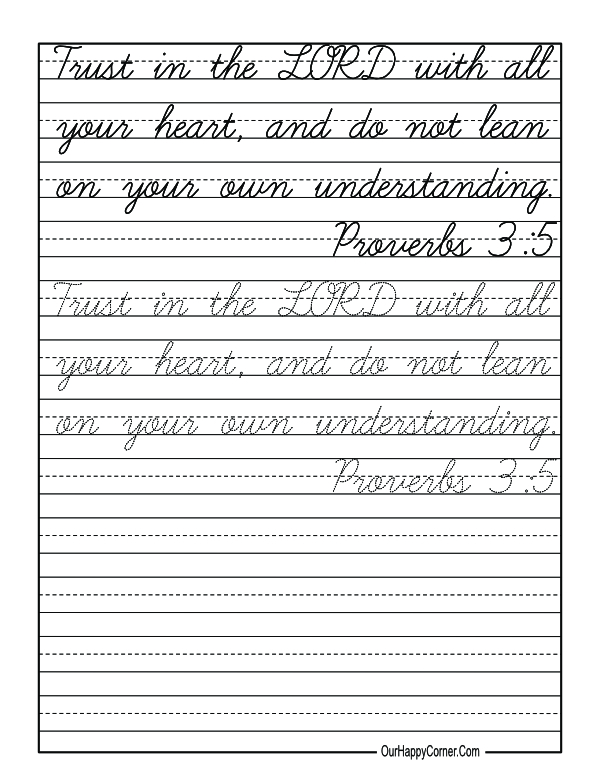 Trust in the LORD with all
your heart, and do not lean
on your own understanding.
Proverbs 3:5
Trust in the LORD with all
your heart, and do not lean
on your own understanding.
Proverbs 3:5
OurHappyCorner.Com